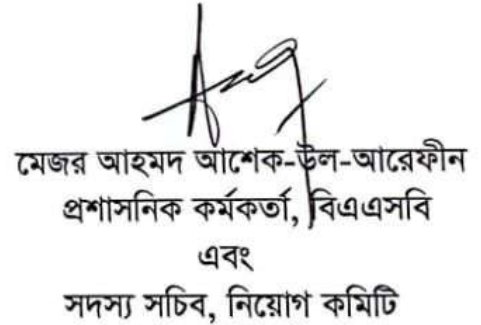 মেজর আহমদ আশেক-উল-আরেফীন
প্রশাসনিক কর্মকর্তা, বিএএসবি
এবং
সদস্য সচিব, নিয়োগ কমিটি